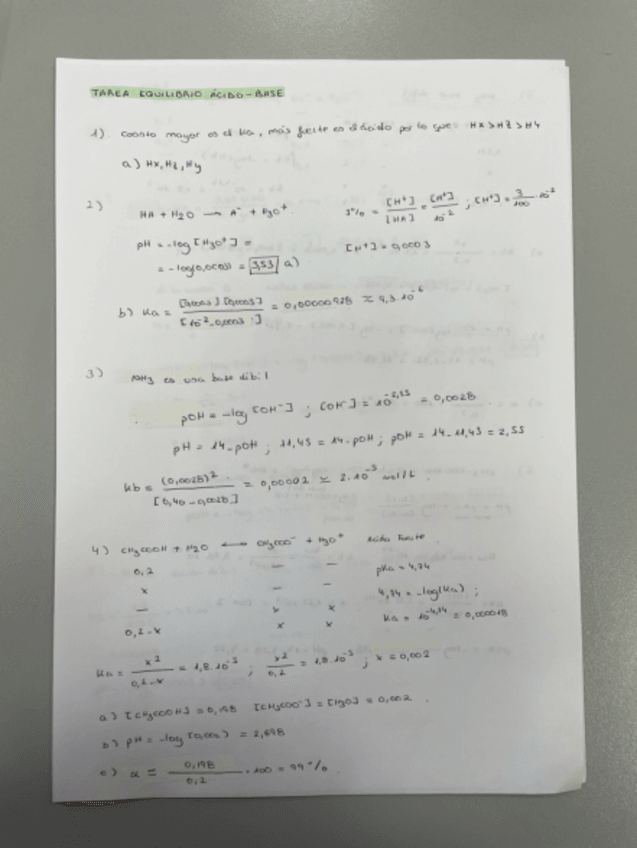 TAREA EQUILIBRIO ÁCIDO-BASE
1) Cuanto mayor es el Ka, más fuerte es el ácido por lo que: Hx > Hz > Hy
a) Hx, Hz, Hy
2) HA + H2O → A⁻ + H3O⁺ 3% = [H⁺]/[HA] = [H⁺]/10⁻² ; [H⁺] = 3/100 · 10⁻²
pH = -log [H3O⁺] = [H⁺] = 0,0003
= -log(0,0003) = 3,53 a)
b) Ka = [0,0003].[0,0003]/[10⁻²-0,0003] = 0,00000928 ≈ 9,3·10⁻⁶
3) NH3 es una base débil
pOH = -log [OH⁻] ; [OH⁻] = 10⁻²,⁵⁵ = 0,0028
pH = 14-pOH ; 11,45 = 14-pOH ; pOH = 14-11,45 = 2,55
Kb = (0,0028)²/[0,40-0,0028] = 0,00002 ≈ 2·10⁻⁵ mol/L
4) CH3COOH + H2O ⟷ CH3COO⁻ + H3O⁺ Ácido fuerte
0,2 — — pKa = 4,74
x — — 4,74 = -log(Ka) ;
— x x Ka = 10⁻⁴,⁷⁴ = 0,000018
0,2-x x x
Ka = x²/0,2-x = 1,8·10⁻⁵ ; x²/0,2 = 1,8·10⁻⁵ ; x = 0,002
a) [CH3COOH] = 0,198 [CH3COO⁻] = [H3O] = 0,002.
b) pH = -log [0,002) = 2,698
c) α = 0,198/0,2 · 100 = 99%.